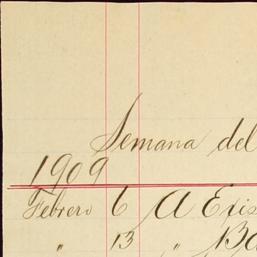 Semana del
1909
Febrero 6 A Exis
" 13 " Ba